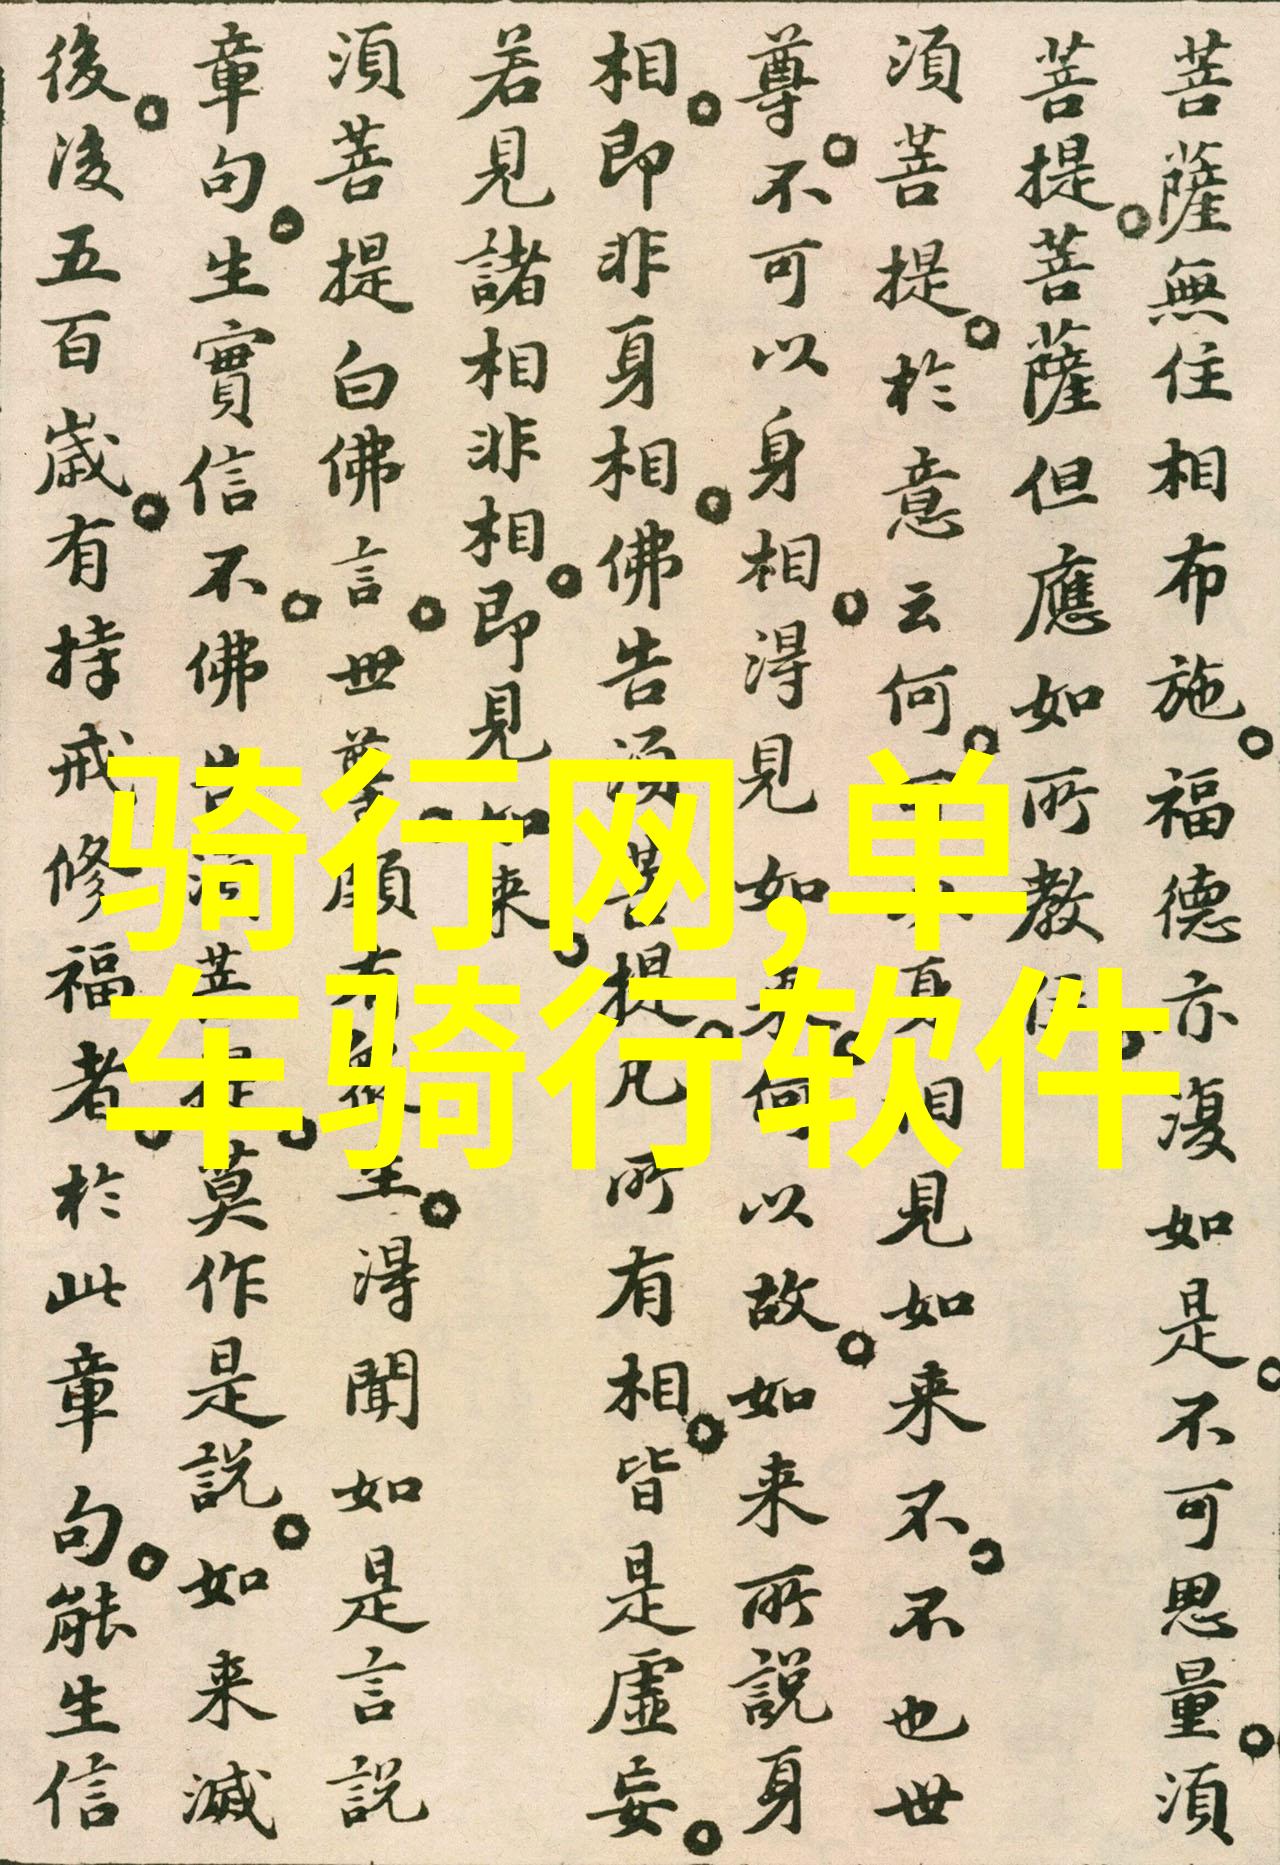 菩薩無住相布施。福德亦復如是。不可思量。須
菩提。菩薩但應如所教住。
須菩提。於意云何。可以身相見如来不。不也世
尊。不可以身相。得見如来。何以故。如来所說身
相。即非身相。佛告須菩提。凡所有相。皆是虛妄。
若見諸相非相。即見如来。
須菩提白佛言。世尊。頗有衆生。得聞如是言說
章句。生實信不。佛告須菩提。莫作是說。如来滅
後。後五百歲。有持戒修福者。於此章句。能生信
骑行网,单
车骑行软件